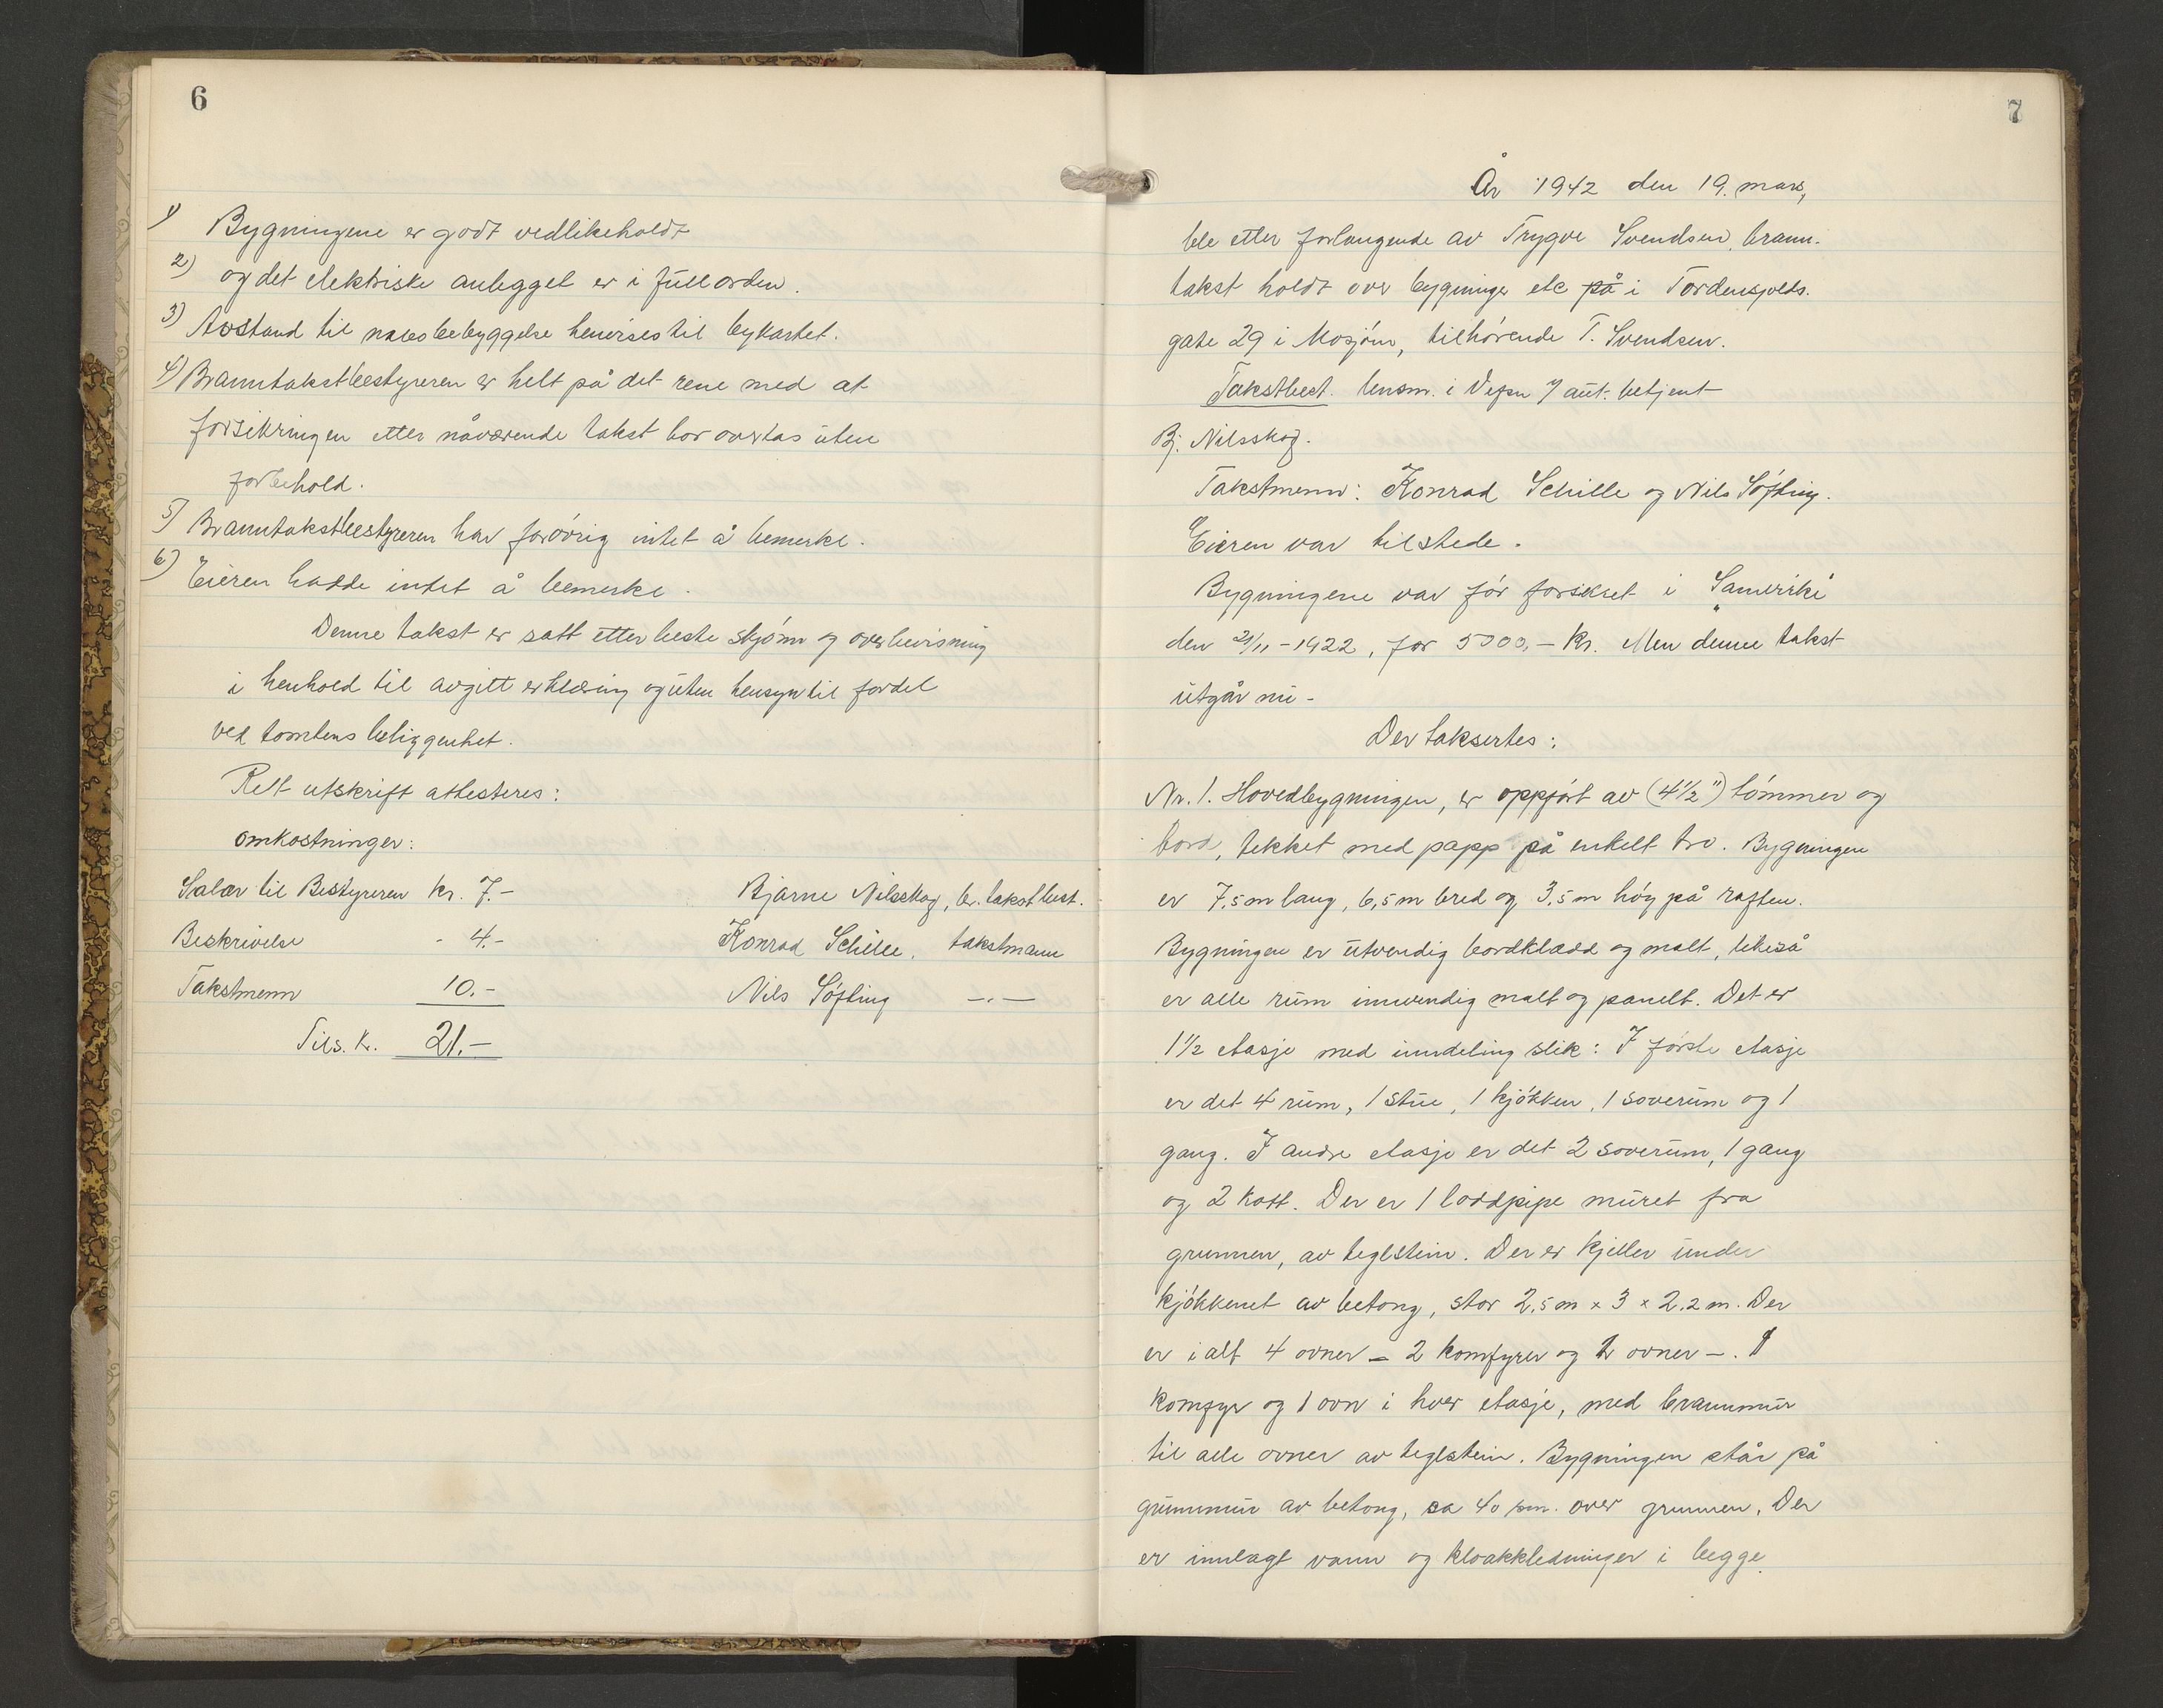 6
1) Bygningene er godt vedlikeholdt
2) og det elektriske anlegget er i full orden.
3) Avstand til nabobebyggelse henvises til bykartet.
4) Branntakstbestyreren er helt på det rene med at
forsikringen etter nåværende takst bør overtas uten
forbehold.
5) Branntakstbestyreren har forøvrig intet å bemerke.
6) Eieren hadde intet å bemerke.
Denne takst er satt etter beste skjønn og overbevisning
i henhold til avgitt erklæring og uten hensyn til fordel
ved tomtens beliggenhet.
Rett utskrift attesteres:
Omkostninger:
Salær til Bestyreren kr. 7.- Bjarne Nilsskog, br. takstbest.
Beskrivelse - 4.- Konrad Schille, takstmann
Takstmenn 10.- Nils Søfting -"-
Tils. kr. 21.-
7
År 1942 den 19. mars,
ble etter forlangende av Trygve Svendsen, brann-
takst holdt over bygninger etc på i Tordenskjolds-
gate 29 i Mosjøen, tilhørende T. Svendsen.
Takstbest. lensm. i Vefsn v/ aut. betjent
Bj. Nilsskog.
Takstmenn: Konrad Schille og Nils Søfting.
Eieren var tilstede.
Bygningene var før forsikret i "Samtrike"
den 21/11-1922, for 5000,- kr. Men denne takst
utgår nu-
Der taksertes:
Nr. 1. Hovedbygningen, er oppført av (4½") tømmer og
bord, tekket med papp på enkelt tro. Bygningen
er 7,5 m lang, 6,5 m bred og 3,5 m høy på raften.
Bygningen er utvendig bordkledd og malt, likeså
er alle rum innvendig malt og panelt. Det er
1½ etasje med inndeling slik: I første etasje
er det 4 rum, 1 stue, 1 kjøkken, 1 soverum og 1
gang. I andre etasje er det 2 soverum, 1 gang
og 2 kott. Der er 1 loddpipe muret fra
grunnen, av teglstein. Der er kjeller under
kjøkkenet av betong, stor 2,5 m x 3 x 2,2 m. Der
er i alt 4 ovner - 2 komfyrer og 2 ovner -. 1
komfyr og 1 ovn i hver etasje, med brannmur
til alle ovner av teglstein. Bygningen står på
grunnmur av betong, ca 40 cm. over grunnen. Der
er innlagt vann og kloakkledninger i begge